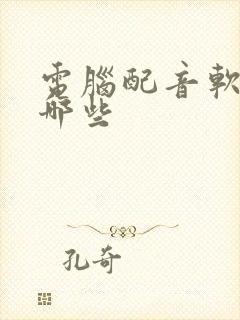 電腦配音軟
哪些
孔奇